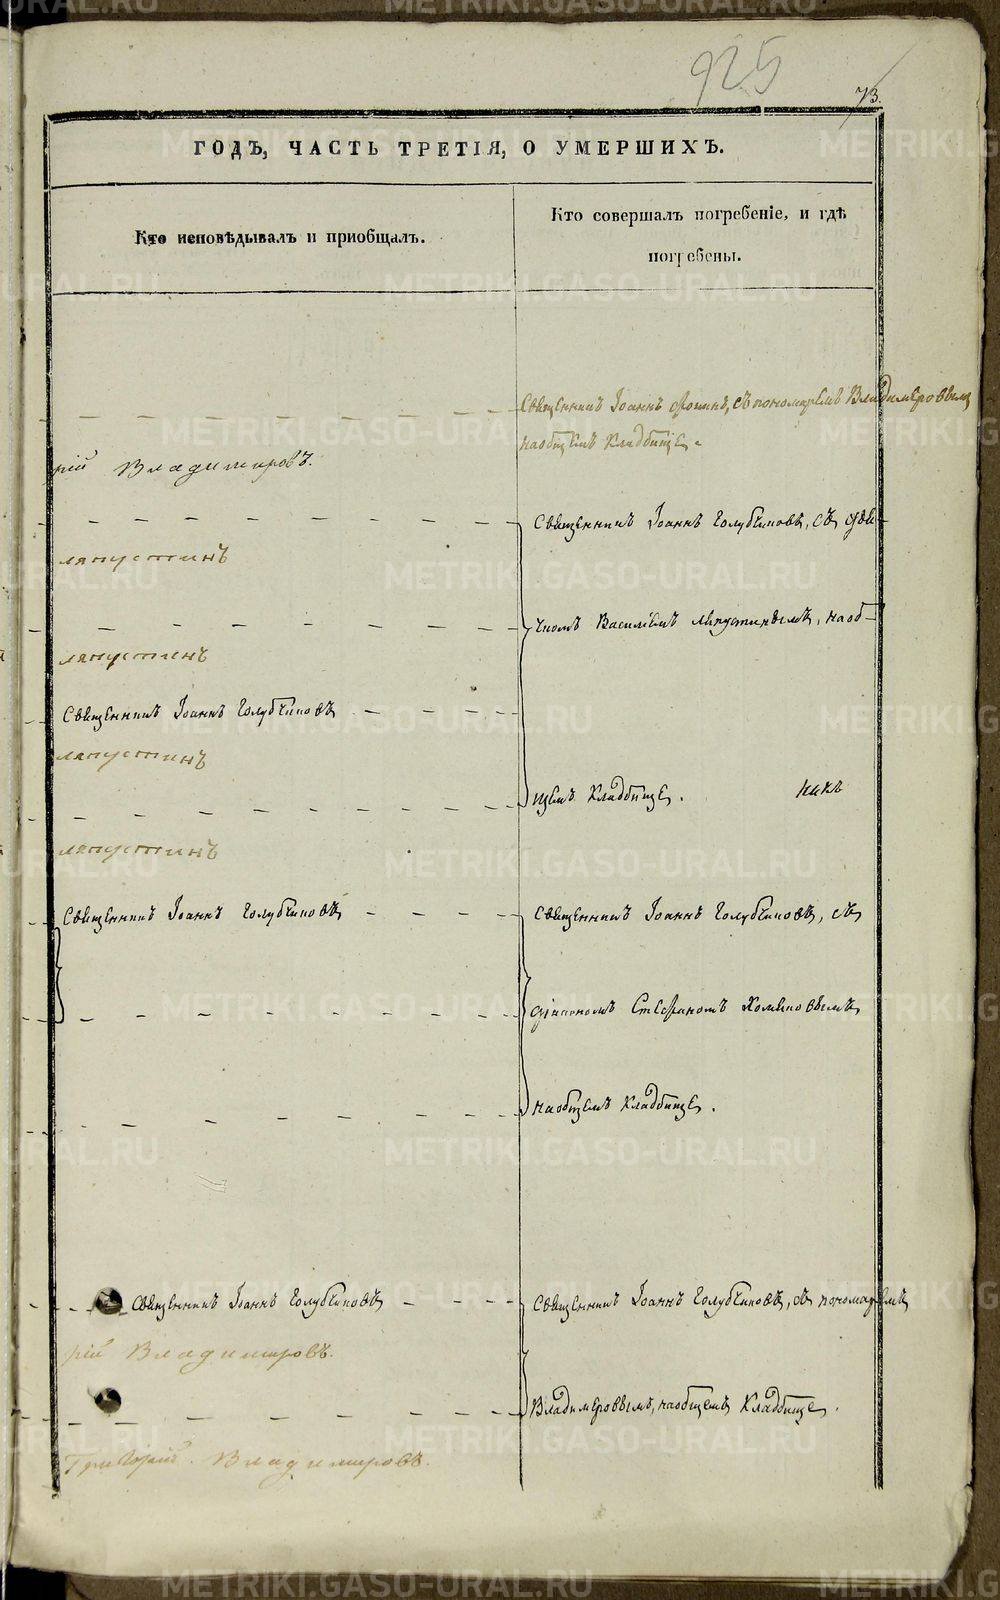 925
73.
ГОДЪ, ЧАСТЬ ТРЕТІЯ, О УМЕРШИХЪ.
Кто исповѣдывалъ и приобщалъ.
Кто совершалъ погребеніе, и гдѣ
погребены.
Священникъ Іоаннъ съ пономаремъ Владимеровымъ
на общемъ кладбищѣ.
рій Владимировъ.
Священникъ Іоаннъ Голубчиковъ, съ дья-
ляпустинъ
чкомъ Василіемъ Ляпустинымъ, на об-
ляпустинъ
Священникъ Іоаннъ Голубчиковъ
ляпустинъ
щемъ кладбищѣ.
ляпустинъ
Священникъ Іоаннъ Голубчиковъ
Священникъ Іоаннъ Голубчиковъ, съ
діакономъ Стефаномъ Хомяковымъ,
на общемъ кладбищѣ.
Священникъ Іоаннъ Голубчиковъ
Священникъ Іоаннъ Голубчиковъ, съ пономаремъ
рій Владимировъ.
Владимеровымъ, на общемъ кладбище.
Григорій Владимировъ.
METRIKI.GASO-URAL.RU